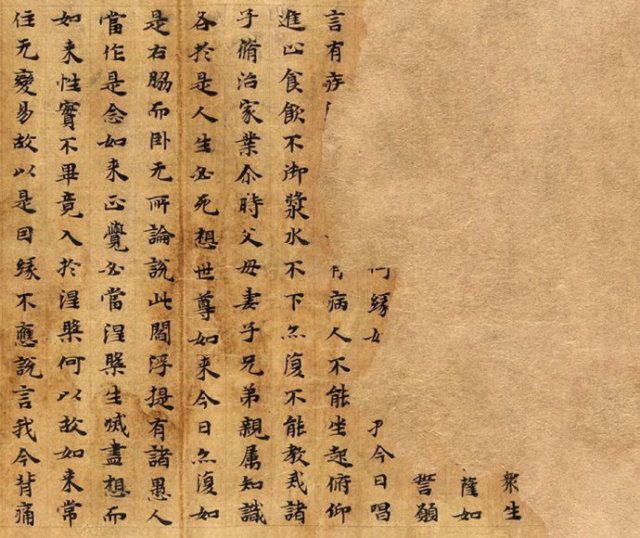 衆生
如
誓願
何緣 今日唱
言有 病人不能坐起俯仰
進止食飲不御漿水不下亦復不能教戒諸
子脩治家業尒時父母妻子兄弟親属知識
各於是人生必死想世尊如来今日亦復如
是右脇而卧无所論説此閻浮提有諸愚人
當作是念如来正覺必當涅槃生滅盡想而
如来性實不畢竟入於涅槃何以故如来常
住无變易故以是因緣不應説言我今背痛